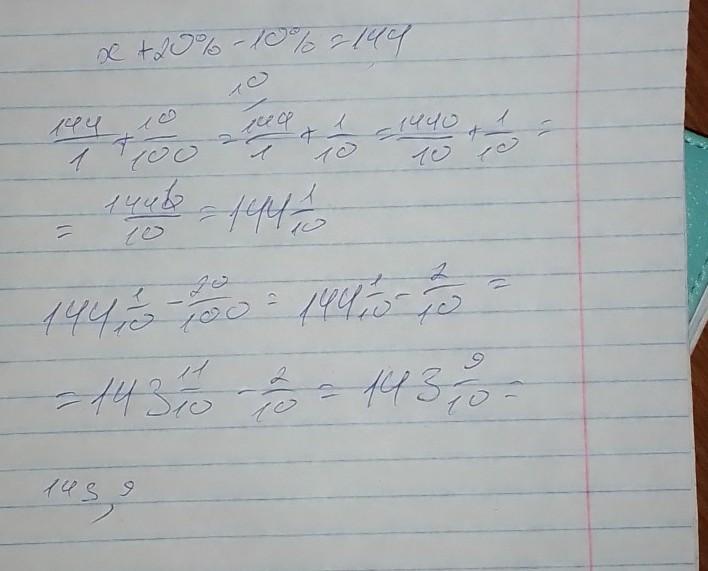 x + 20% - 10% = 144
10
144/1 + 10/100 = 144/1 + 1/10 = 1440/10 + 1/10 =
= 1441/10 = 144 1/10
144 1/10 - 20/100 = 144 1/10 - 2/10 =
= 143 11/10 - 2/10 = 143 9/10 =
143,9